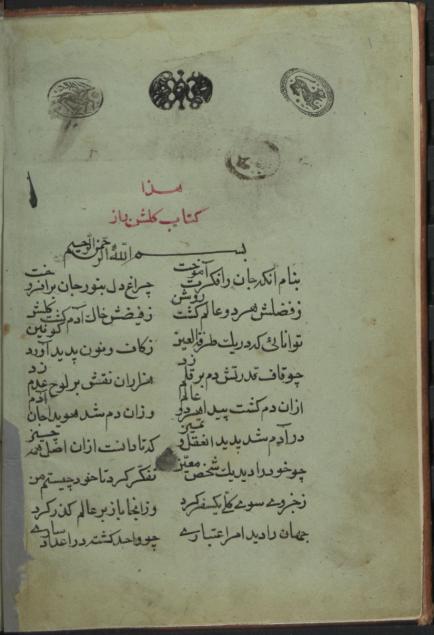 هذا
كتاب گلشن راز
بسم الله الرحمن الرحيم
بنام انكه جان را فكرت آموخت چراغ دل بنور جان برافروخت
ز فضلش هر دو عالم گشت روشن ز فيضش خاك آدم گشت گلشن
توانائى كه در يك طرفة العين ز كاف و نون پديد آورد كونين
چو قاف قدرتش دم بر قلم زد هزاران نقش بر لوح عدم زد
از ان دم گشت پيدا هر دو عالم وز ان دم شد هويدا جان آدم
در آدم شد پديد ان عقل و تميز كه تا دانست از ان اصل همه چيز
چو خود را ديد يك شخص معين تفكر كرد تا خود چيستم من
ز جزوى سوى كلى يك سفر كرد وز انجا باز بر عالم گذر كرد
جهان را ديد امر اعتبارى چو واحد گشته در اعداد سارى